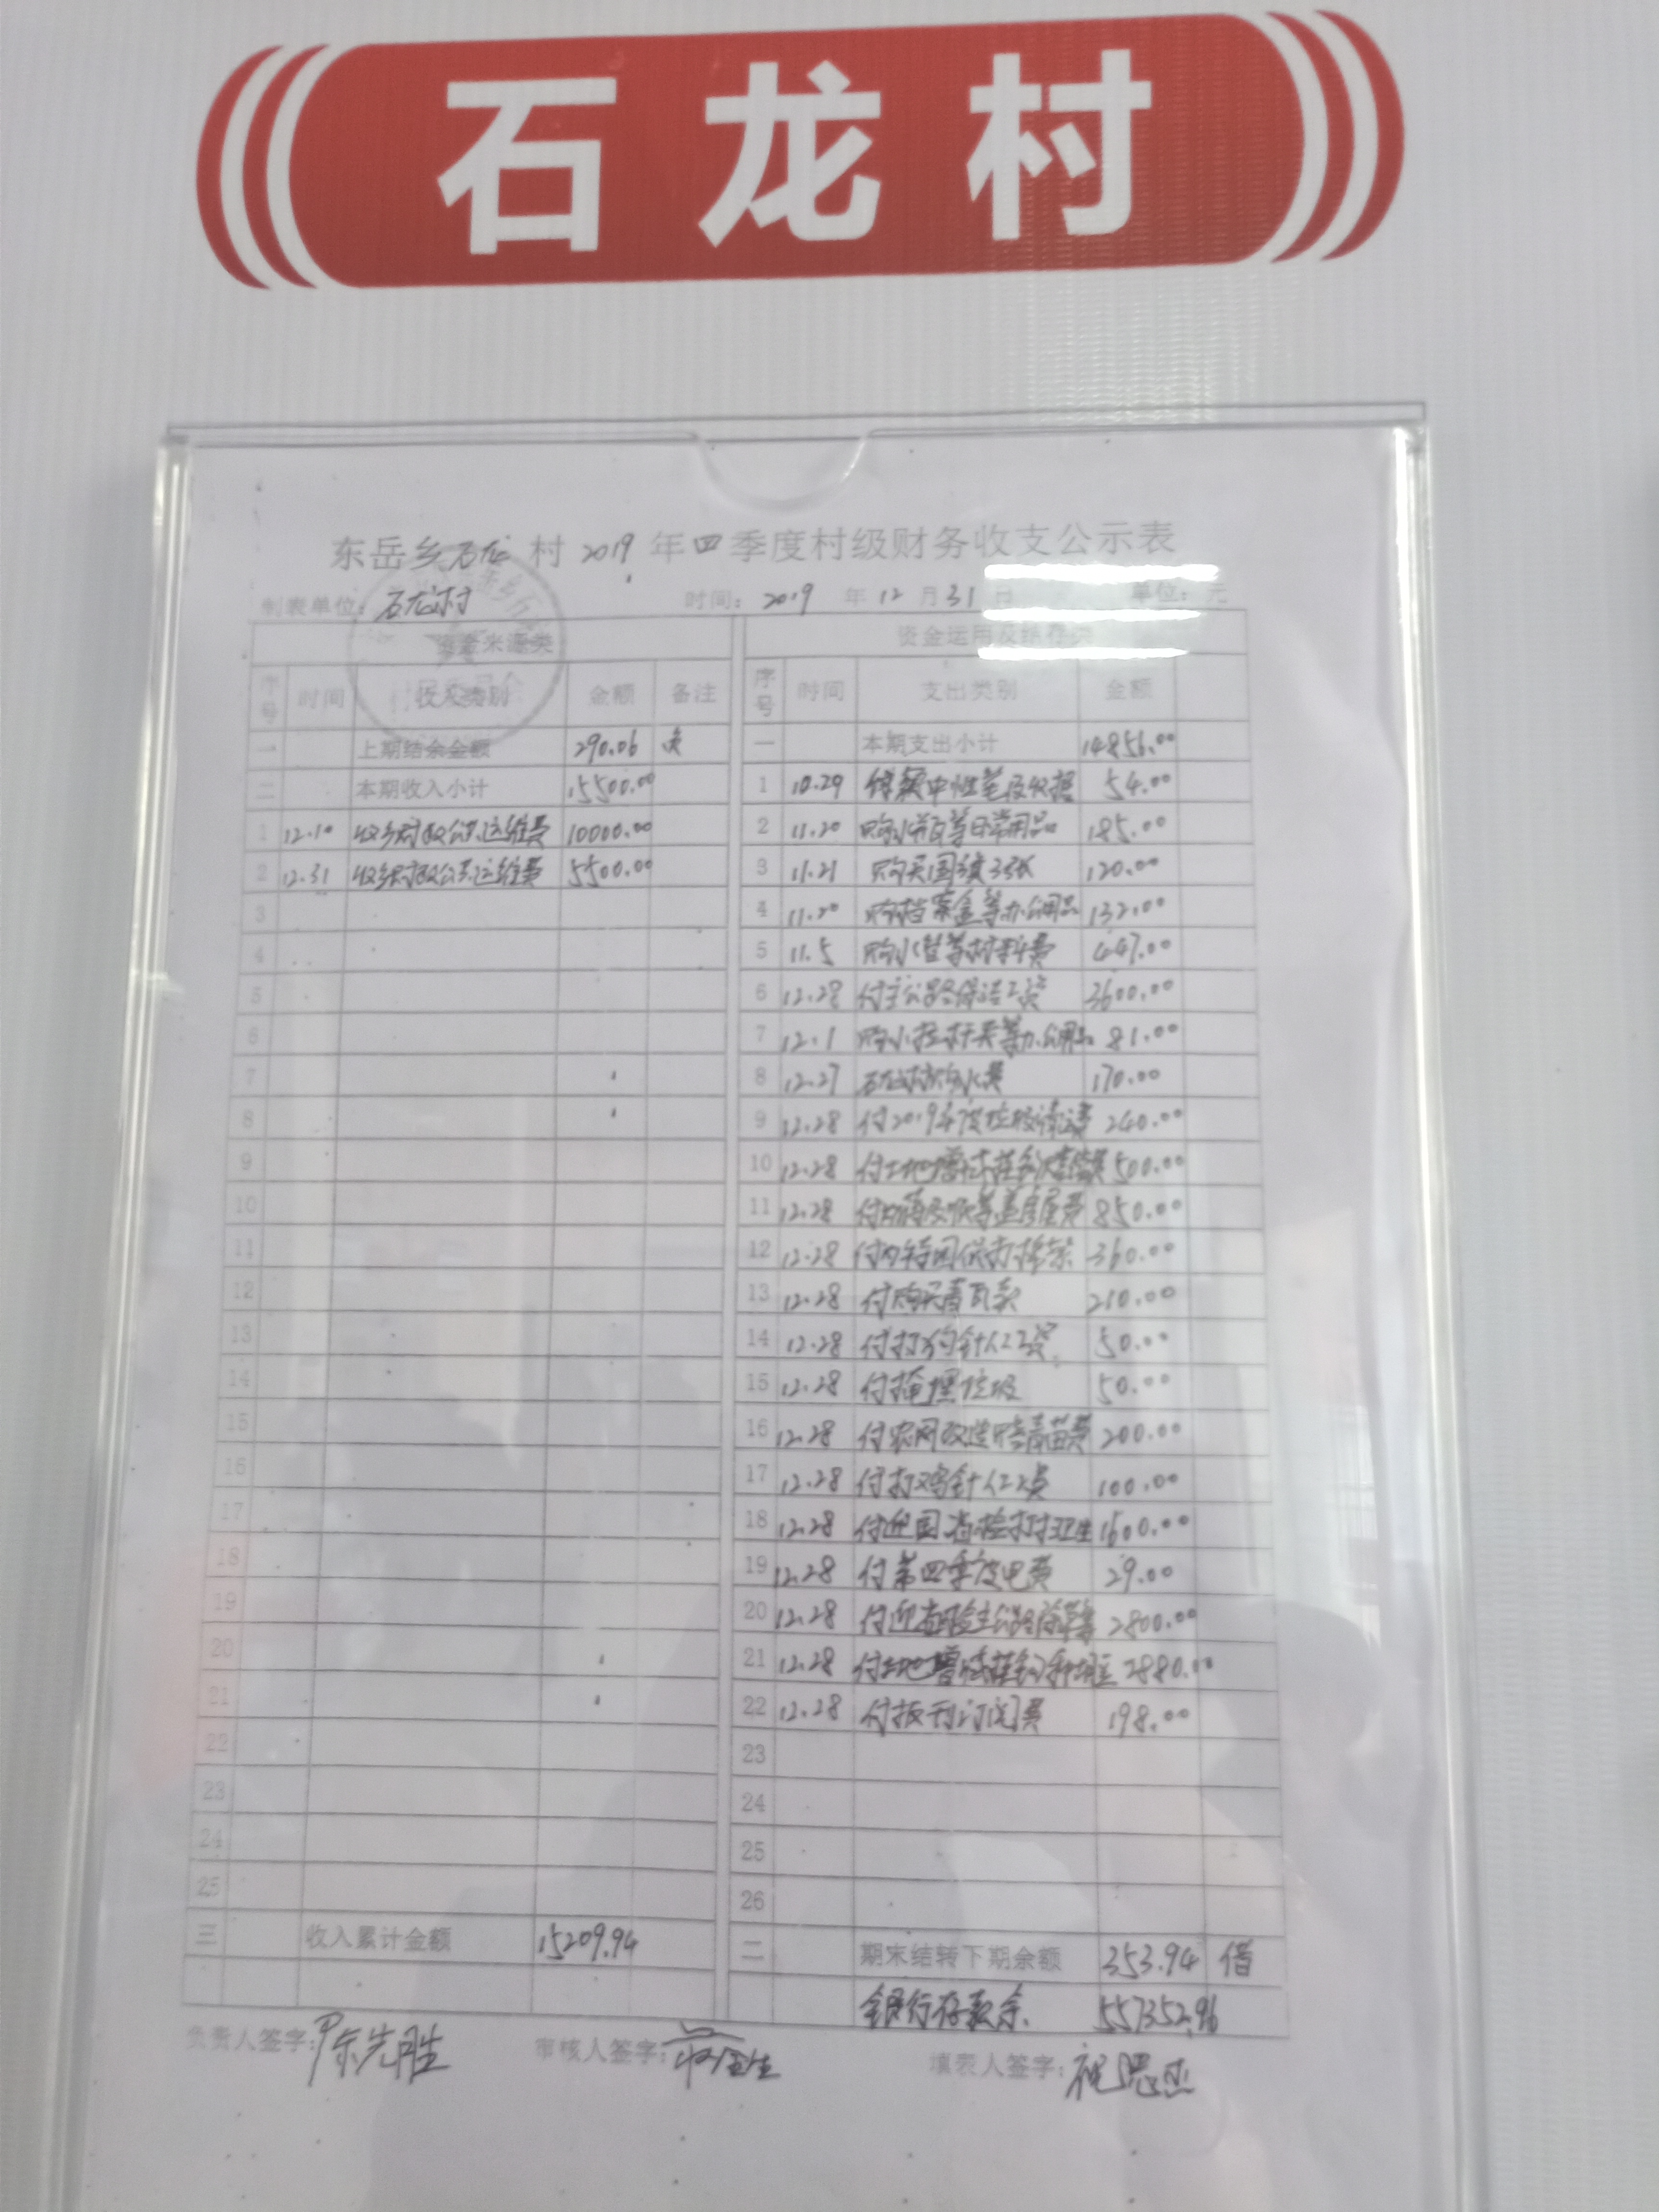 石龙村
东岳乡石龙村2019年四季度村级财务收支公示表
制表单位:石龙村 时间:2019年12月31日 单位:元
资金来源类 资金运用及结存类
序号 时间 收入类别 金额 备注 序号 时间 支出类别 金额
一 上期结余金额 290.06 负 一 本期支出小计 14856.00
二 本期收入小计 15500.00 1 10.29 中性笔及 54.00
1 12.10 收乡财政公共运维费 10000.00 2 11.20 购 等日常用品 185.00
2 12.31 收乡财政公共运维费 5500.00 3 11.21 购买国旗3张 120.00
3 4 11.20 购档案盒等办公用品 132.00
4 5 11.5 购水管等材料费 447.00
5 6 12.28 付主公路保洁工资 3600.00
6 7 12.1 购 等办公用品 81.00
7 8 12.27 石龙村 水费 170.00
8 9 12.28 付2019年度垃圾清运费 240.00
9 10 12.28 付土地增减挂钩 500.00
10 11 12.28 付 等盖房屋费 850.00
11 12 12.28 付 360.00
12 13 12.28 付购买青瓦款 210.00
13 14 12.28 付打狗针人工资 50.00
14 15 12.28 付掩埋垃圾 50.00
15 16 12.28 付农网改造 青苗费 200.00
16 17 12.28 付打鸡针人工费 100.00
17 18 12.28 付迎国省检打扫卫生 1600.00
18 19 12.28 付第四季度电费 29.00
19 20 12.28 付迎 主公路除草 2800.00
20 21 12.28 付土地增减挂钩 2880.00
21 22 12.28 付报刊订阅费 198.00
22 23
23 24
24 25
25 26
三 收入累计金额 15209.94 二 期末结转下期余额 353.94 借
银行存款余. 557352.96
负责人签字:陈先胜 审核人签字: 填表人签字: